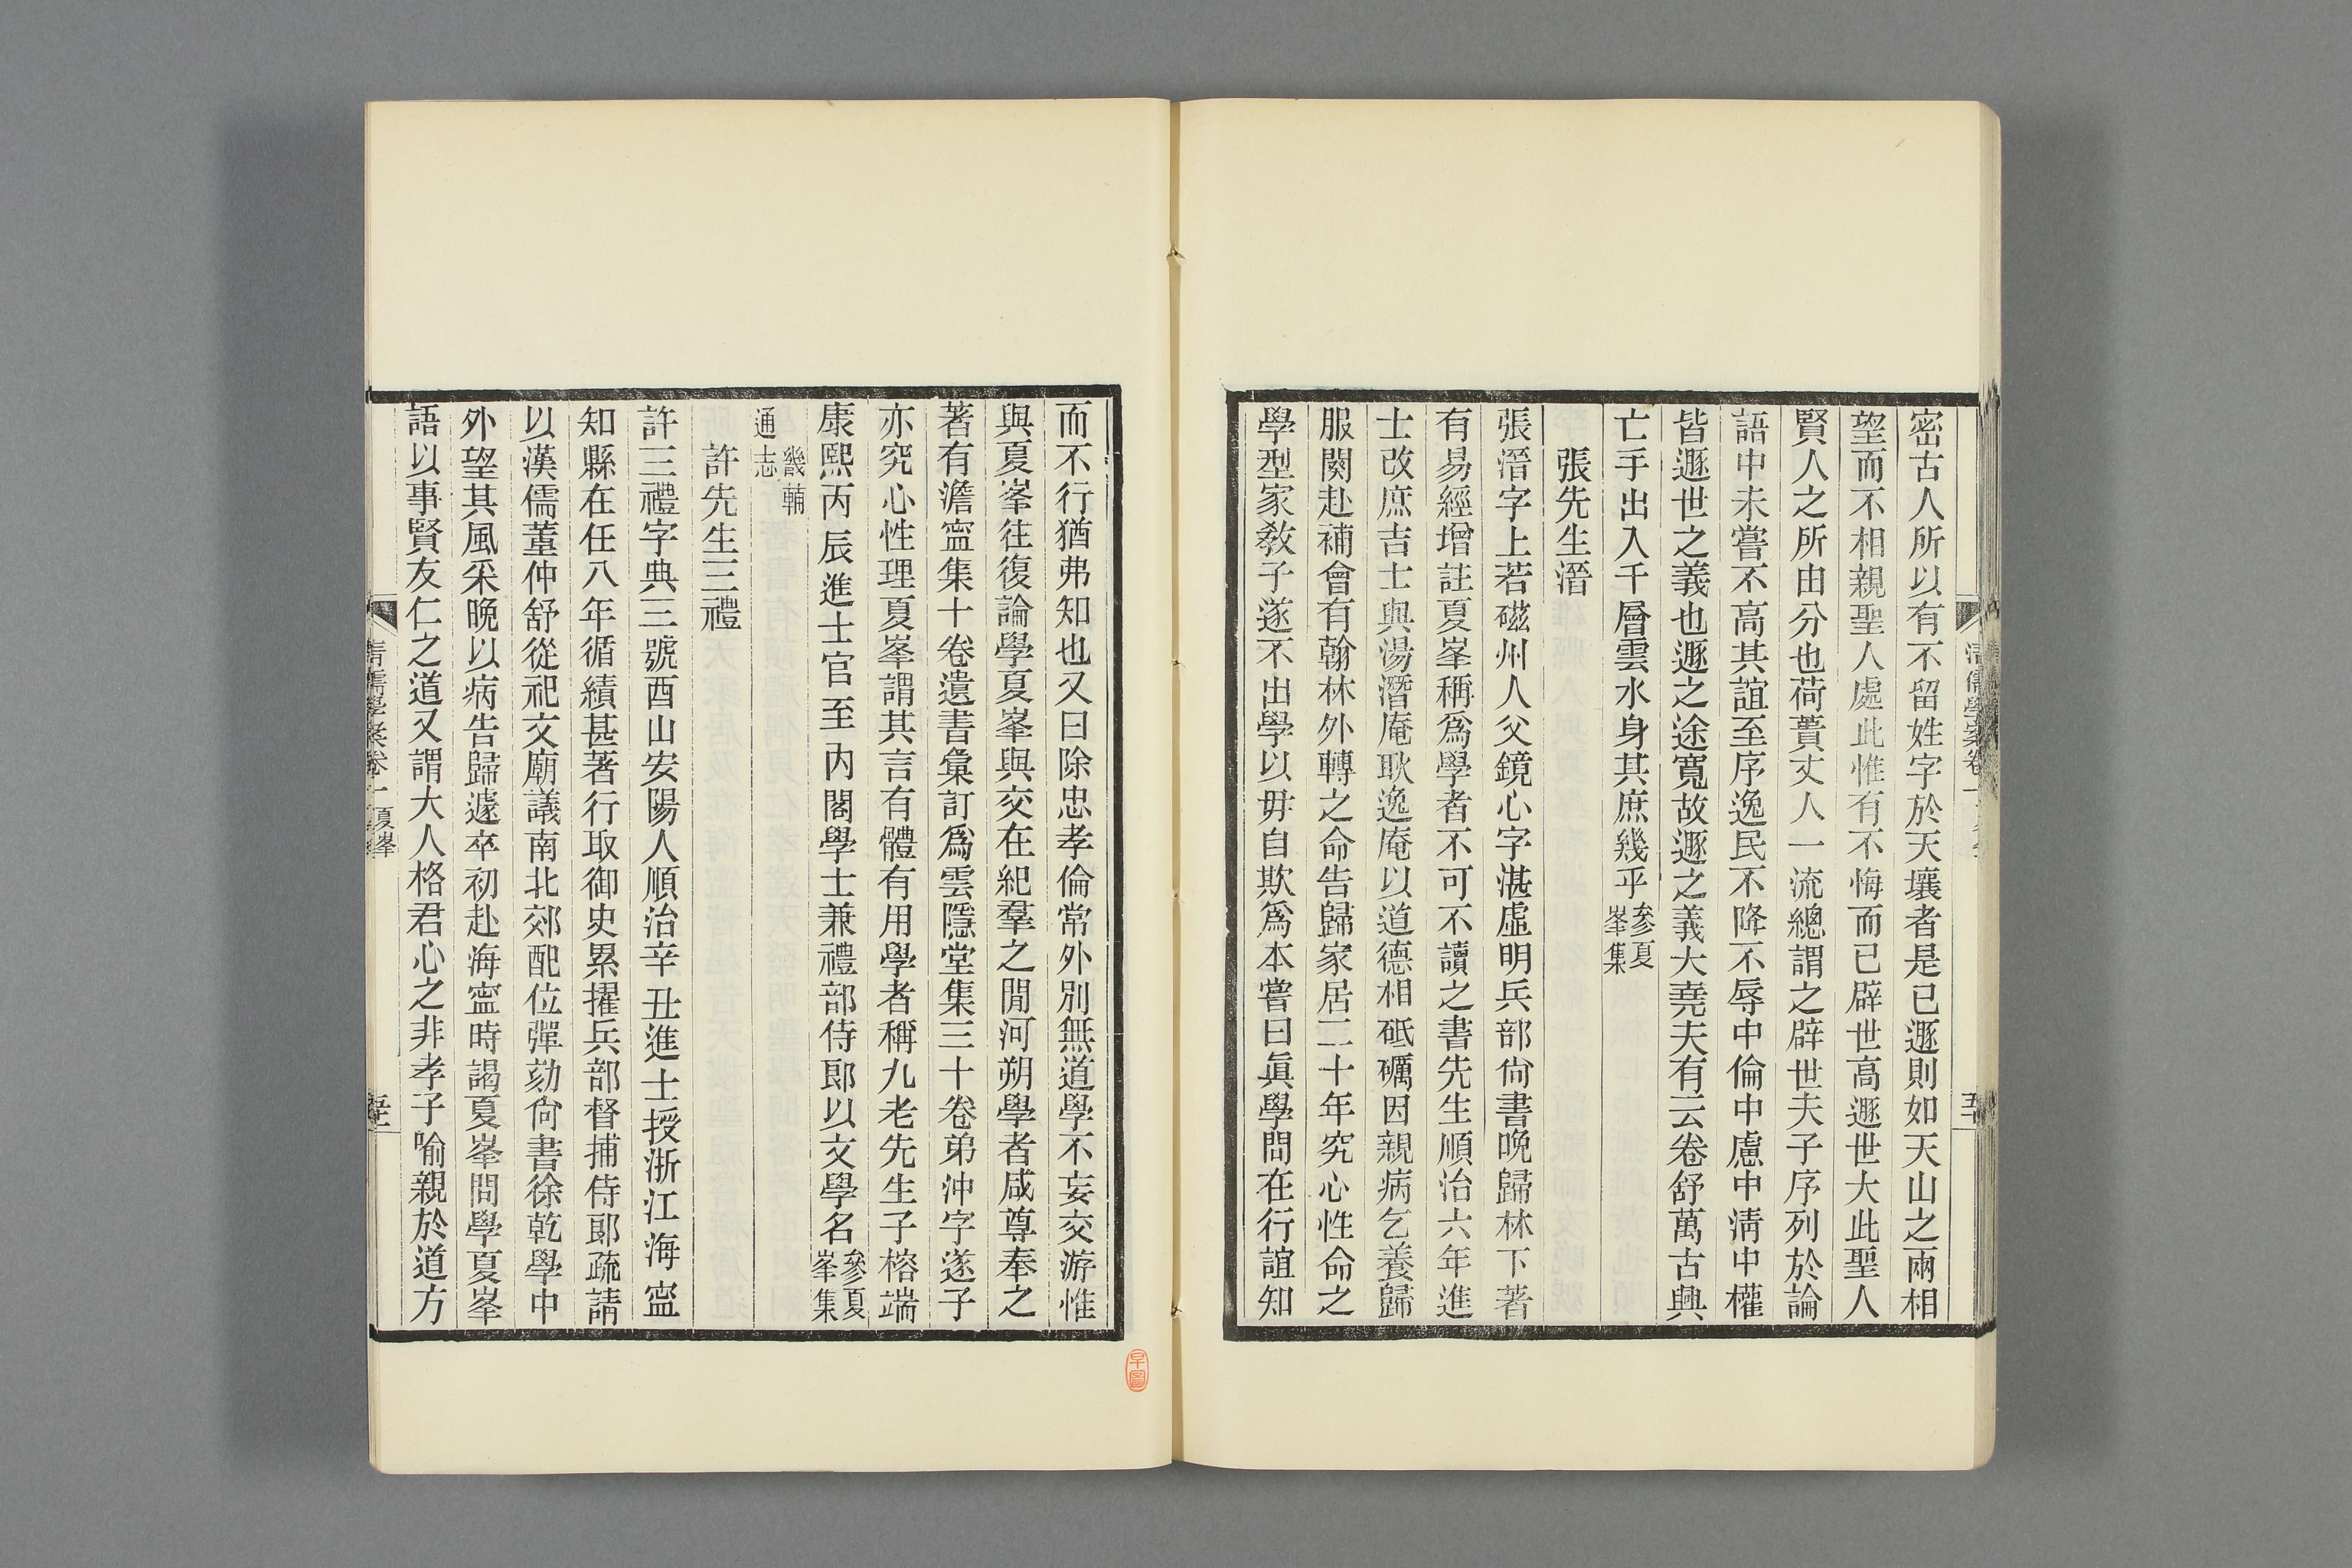 密古人所以有不留姓字於天壤者是已遯則如天山之兩相
望而不相親聖人處此惟有不悔而已辟世高遯世大此聖人
賢人之所由分也荷蕢丈人一流總謂之辟世夫子序列於論
語中未嘗不高其誼至序逸民不降不辱中倫中慮中淸中權
皆遯世之義也遯之途寬故遯之義大堯夫有云卷舒萬古興
亡手出入千層雲水身其庶幾乎參夏峯集
張先生溍
張溍字上若磁州人父鏡心字湛虛明兵部尙書晚歸林下著
有易經增註夏峯稱爲學者不可不讀之書先生順治六年進
士改庶吉士與湯潛庵耿逸庵以道德相砥礪因親病乞養歸
服闋赴補會有翰林外轉之命告歸家居二十年究心性命之
學型家敎子遂不出學以毋自欺爲本嘗曰眞學問在行誼知
而不行猶弗知也又曰除忠孝倫常外別無道學不妄交游惟
與夏峯往復論學夏峯與交在紀羣之閒河朔學者咸尊奉之
著有澹寍集十卷遺書彙訂爲雲隱堂集三十卷弟沖字遂子
亦究心性理夏峯謂其言有體有用學者稱九老先生子榕端
康熙丙辰進士官至內閣學士兼禮部侍郞以文學名參夏峯集
畿輔通志
許先生三禮
許三禮字典三號酉山安陽人順治辛丑進士授浙江海寍
知縣在任八年循績甚著行取御史累擢兵部督捕侍郞疏請
以漢儒董仲舒從祀文廟議南北郊配位彈劾尙書徐乾學中
外望其風采晚以病告歸遽卒初赴海寍時謁夏峯問學夏峯
語以事賢友仁之道又謂大人格君心之非孝子喻親於道方
清儒學案卷一 夏峯